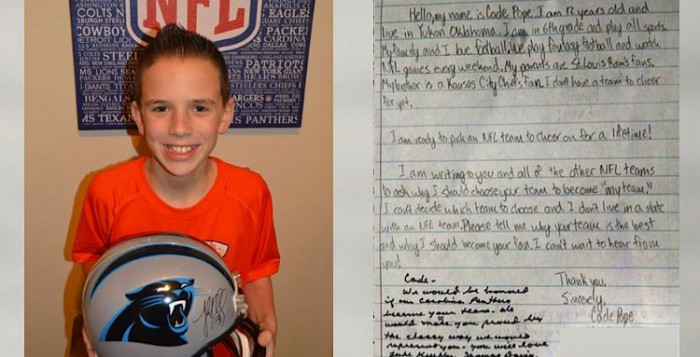 NFL
COWBOY
DETROIT LIO
COLTS STEE
MS LIONS
GIANTS TITAN
BENGAL
S TEXA
EAGLES
PACKE
CARDINA
PATRIOTS
NEW YORK GIAN
CHARGERS
STEELERS CHIEFS
PANTHERS
Hello, my name is Cade Pope. I am 12 years old and
live in Yukon Oklahoma. I am in 6th grade and play all sports.
My family and I love football. We play fantasy football and watch
NFL games every weekend. My parents are St. Louis Rams fans.
My brother is a Kansas City Chiefs fan. I don't have a team to cheer
for yet.
I am ready to pick an NFL team to cheer on for a lifetime!
I am writing to you and all of the other NFL teams
to ask why I should choose your team to become "my team."
I can't decide which team to choose and I don't live in a state
with an NFL team. Please tell me why your team is the best
and why I should become your fan. I can't wait to hear from
you!
Thank you,
Sincerely,
Cade Pope
Cade-
We would be honored
if our Carolina Panthers
became your team. We
would make you proud by
the classy way we would
represent you. You will love
Luke Kuechly, Thomas Davis